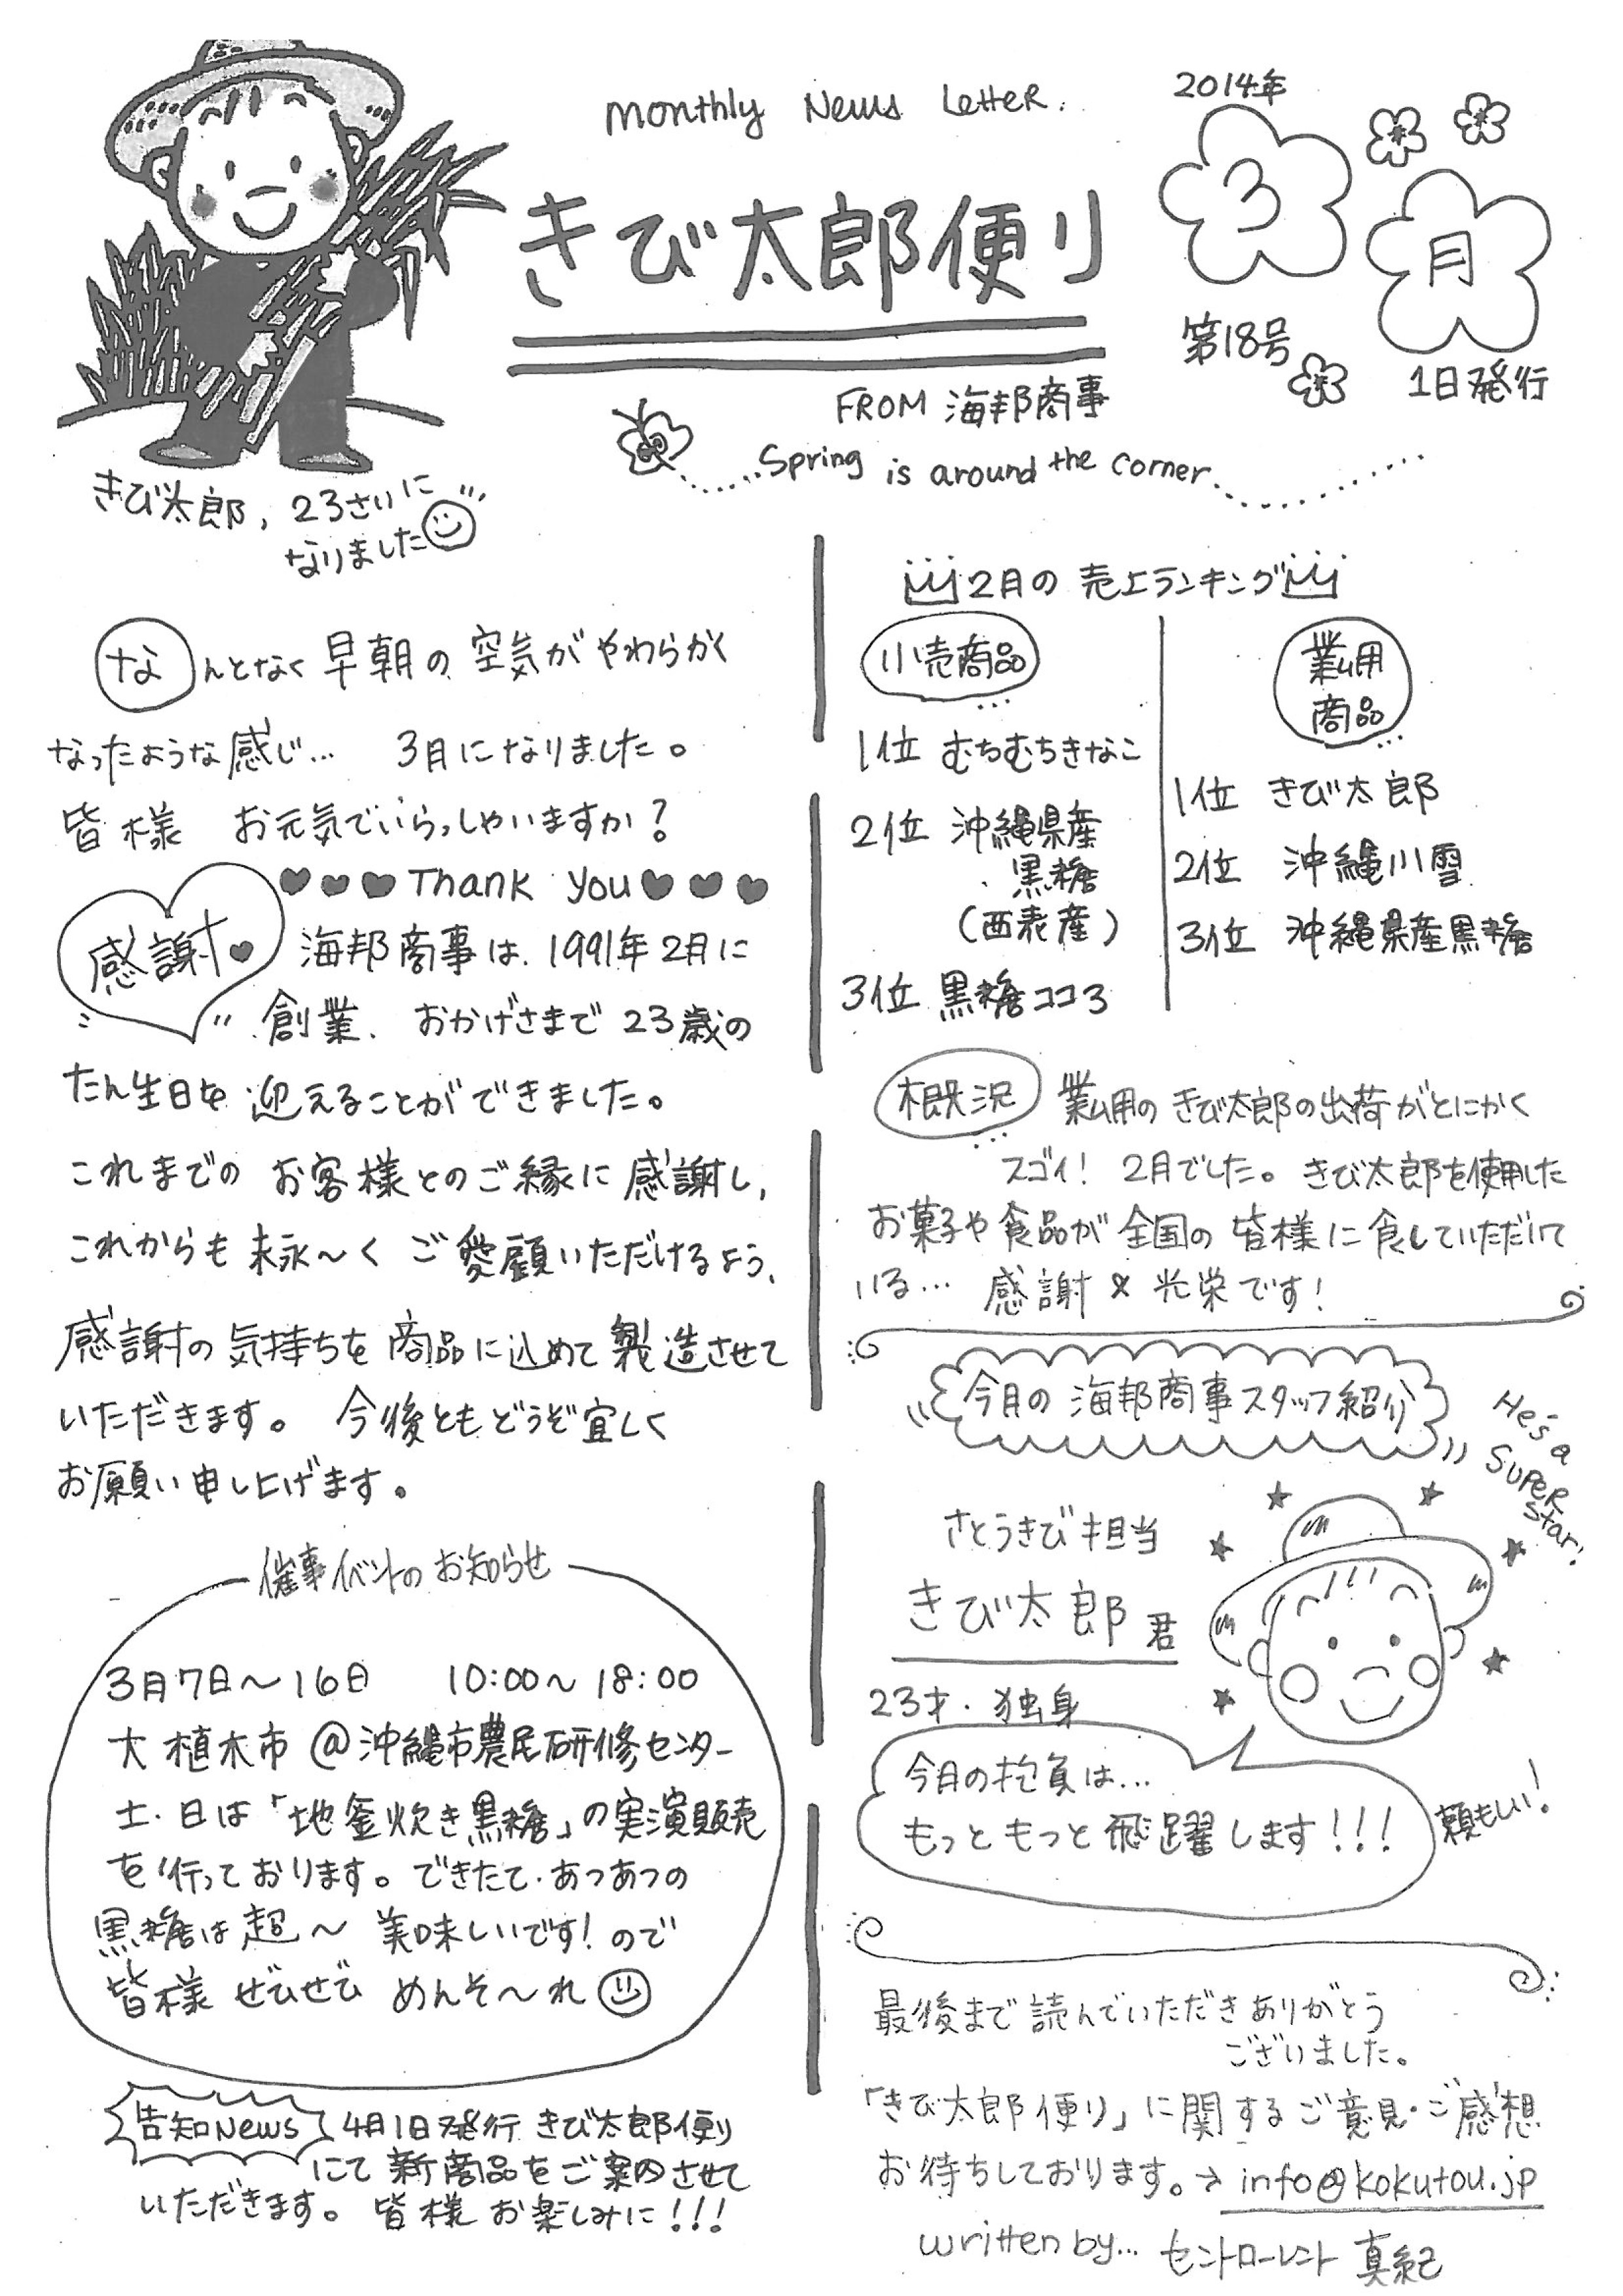 Monthly News Letter.
きび太郎便り
2014年
3月
第18号
1日発行
FROM 海邦商事
Spring is around the corner
きび太郎, 23さいに
なりました
なんとなく早朝の空気がやわらかく
なったような感じ… 3月になりました。
皆様 お元気でいらっしゃいますか?
Thank You
感謝
海邦商事は、1991年2月に
創業、おかげさまで23歳の
たん生日を迎えることができました。
これまでの お客様とのご縁に感謝し、
これからも末永〜く ご愛顧いただけるよう、
感謝の気持ちを商品に込めて製造させて
いただきます。 今後ともどうぞ宜しく
お願い申し上げます。
催事イベントのお知らせ
3月7日〜16日 10:00〜18:00
大植木市 @沖縄市農民研修センター
土・日は「地釜炊き黒糖」の実演販売
を行っております。できたて・あつあつの
黒糖は超〜 美味しいです!ので
皆様 ぜひぜひ めんそ〜れ
告知News 4月1日発行 きび太郎便り
にて 新商品をご案内させて
いただきます。 皆様 お楽しみに!!!
2月の売上ランキング
小売商品
1位 むちむちきなこ
2位 沖縄県産
黒糖
(西表産)
3位 黒糖ココ3
業務用
商品
1位 きび太郎
2位 沖縄川雪
3位 沖縄県産黒糖
概況 業務用のきび太郎の出荷がとにかく
スゴイ! 2月でした。きび太郎を使用した
お菓子や食品が全国の皆様に食していただいて
いる… 感謝&光栄です!
今月の海邦商事スタッフ紹介
He's a
SUPER
star!
さとうきび担当
きび太郎君
23才・独身
今月の抱負は…
もっともっと飛躍します!!!
頼もしい!
最後まで読んでいただきありがとう
ございました。
「きび太郎便り」に関するご意見・ご感想
お待ちしております。→info@kokutou.jp
written by… セントローレント 真紀